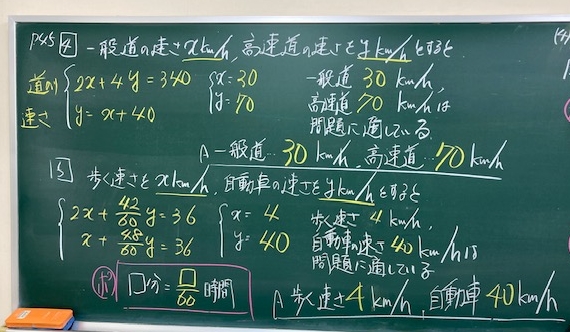 P45 4 一般道の速さxkm/h,高速道の速さをykm/hとすると
道のり 2x+4y=340
速さ y=x+40
x=30
y=70
一般道 30 km/h,
高速道 70 km/hは
問題に適している
A 一般道…30 km/h,高速道…70 km/h
5
歩く速さをxkm/h,自動車の速さをykm/hとすると
2x+42/60y=36
x+48/60y=36
x=4
y=40
歩く速さ 4 km/h,
自動車の速さ 40 km/hは
問題に適している
ポ □分=□/60時間
A 歩く速さ4km/h,自動車40km/h